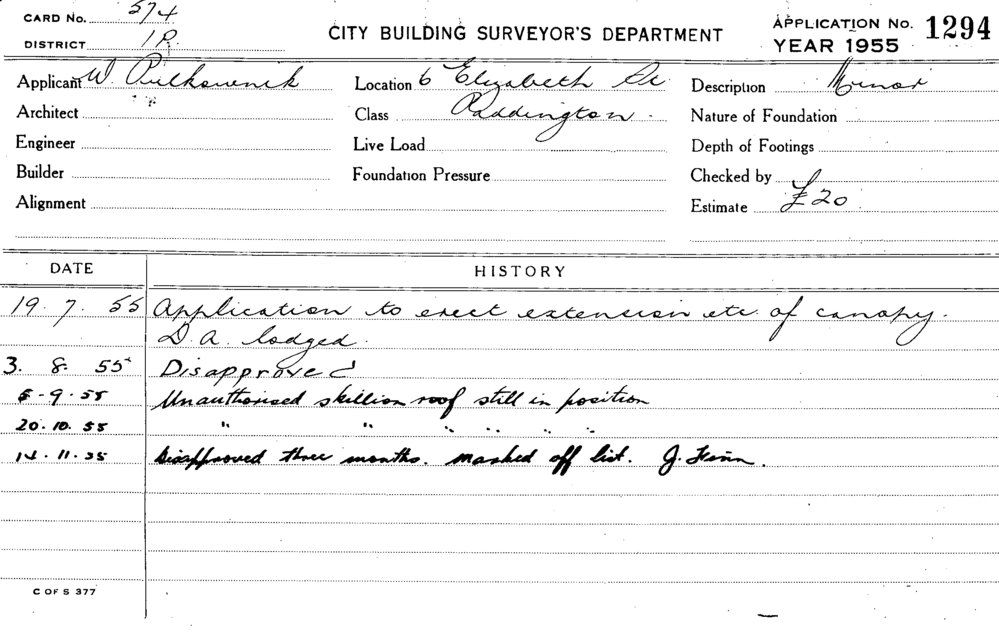 CARD No. 574
DISTRICT 1R.
CITY BUILDING SURVEYOR'S DEPARTMENT
APPLICATION No. 1294
YEAR 1955
Applicant W. Pulkownik Location 6 Elizabeth St Description Minor
Architect Class Paddington. Nature of Foundation
Engineer Live Load Depth of Footings
Builder Foundation Pressure Checked by
Alignment Estimate £20
DATE HISTORY
19. 7. 55 Application to erect extension etc. of canopy.
D.A. lodged.
3. 8. 55 Disapproved
6-9.55 Unauthorised skillion roof still in position
20.10.55 " " " " " "
14.11.55 Disapproved three months. marked off list. J.
C OF S 377